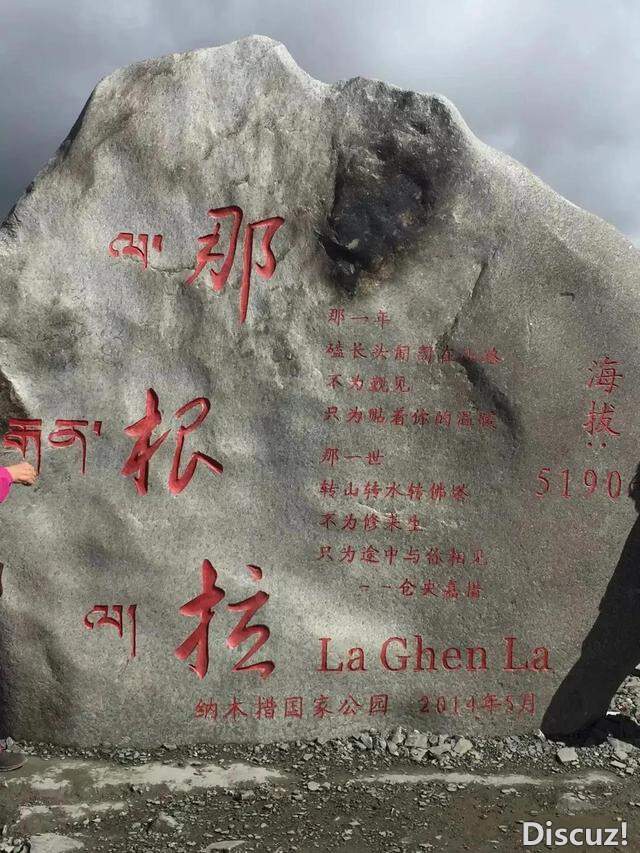 ལ་ 那
གན་ 根
ལ་ 拉
那一年
磕长头匍匐在山路
不为觐见
只为贴着你的温暖
那一世
转山转水转佛塔
不为修来生
只为途中与你相见
--仓央嘉措
海拔:
5190
La Ghen La
纳木措国家公园 2014年5月
Discuz!